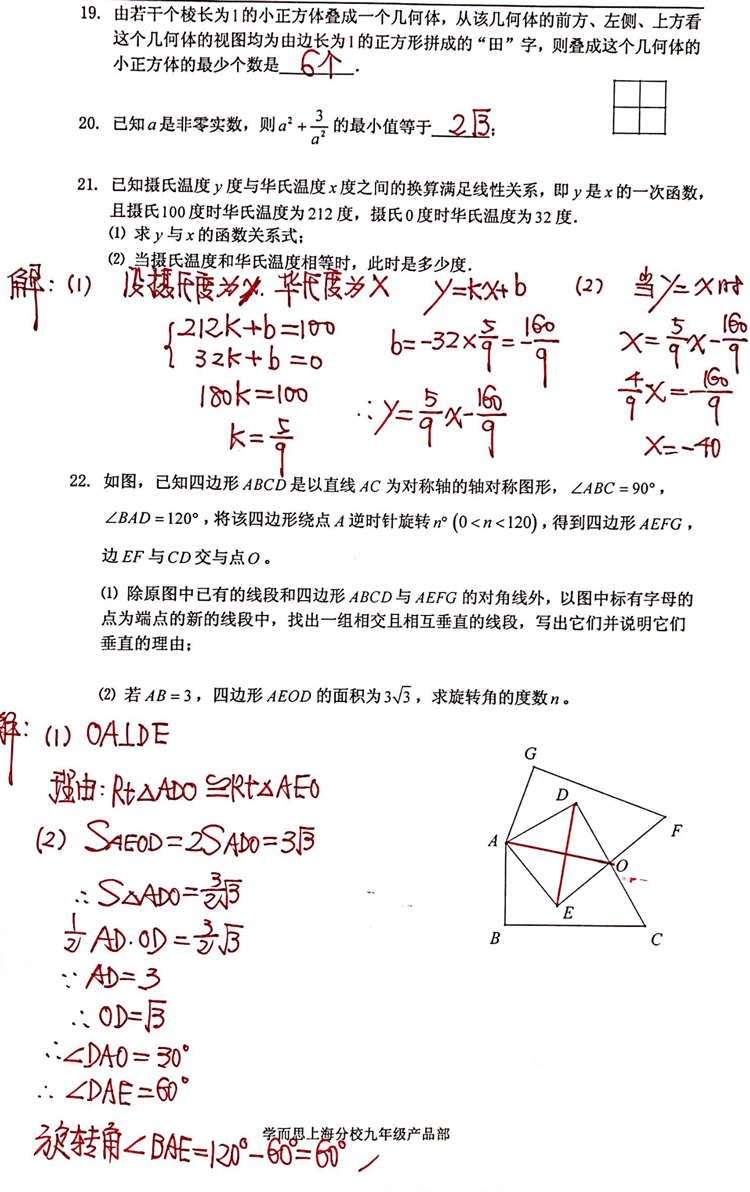 19. 由若干个棱长为1的小正方体叠成一个几何体，从该几何体的前方、左侧、上方看
这个几何体的视图均为由边长为1的正方形拼成的“田”字，则叠成这个几何体的
小正方体的最少个数是 6个 .
20. 已知a是非零实数，则a² + 3/a² 的最小值等于 2√3 ;
21. 已知摄氏温度y度与华氏温度x度之间的换算满足线性关系，即y是x的一次函数，
且摄氏100度时华氏温度为212度，摄氏0度时华氏温度为32度.
⑴ 求y与x的函数关系式；
⑵ 当摄氏温度和华氏温度相等时，此时是多少度.
解：(1) 设摄氏度为y. 华氏度为X y=kx+b
{212k+b=100
32k+b=0
180k=100
k=5/9
b=-32×5/9=-160/9
∴y=5/9x-160/9
(2) 当y=x时
x=5/9x-160/9
4/9x=-160/9
x=-40
22. 如图，已知四边形ABCD是以直线AC为对称轴的轴对称图形，∠ABC=90°，
∠BAD=120°，将该四边形绕点A逆时针旋转n°(0<n<120)，得到四边形AEFG，
边EF与CD交与点O。
⑴ 除原图中已有的线段和四边形ABCD与AEFG的对角线外，以图中标有字母的
点为端点的新的线段中，找出一组相交且相互垂直的线段，写出它们并说明它们
垂直的理由；
⑵ 若AB=3，四边形AEOD的面积为3√3，求旋转角的度数n。
解：(1) OA⊥DE
理由：Rt△ADO≌Rt△AEO
(2) SAEOD=2SADO=3√3
∴S△ADO=3/2√3
1/2AD·OD=3/2√3
∵AD=3
∴OD=√3
∴∠DAO=30°
∴∠DAE=60°
旋转角∠BAE=120°-60°=60°
G
D
F
A
O
E
B
C
学而思上海分校九年级产品部